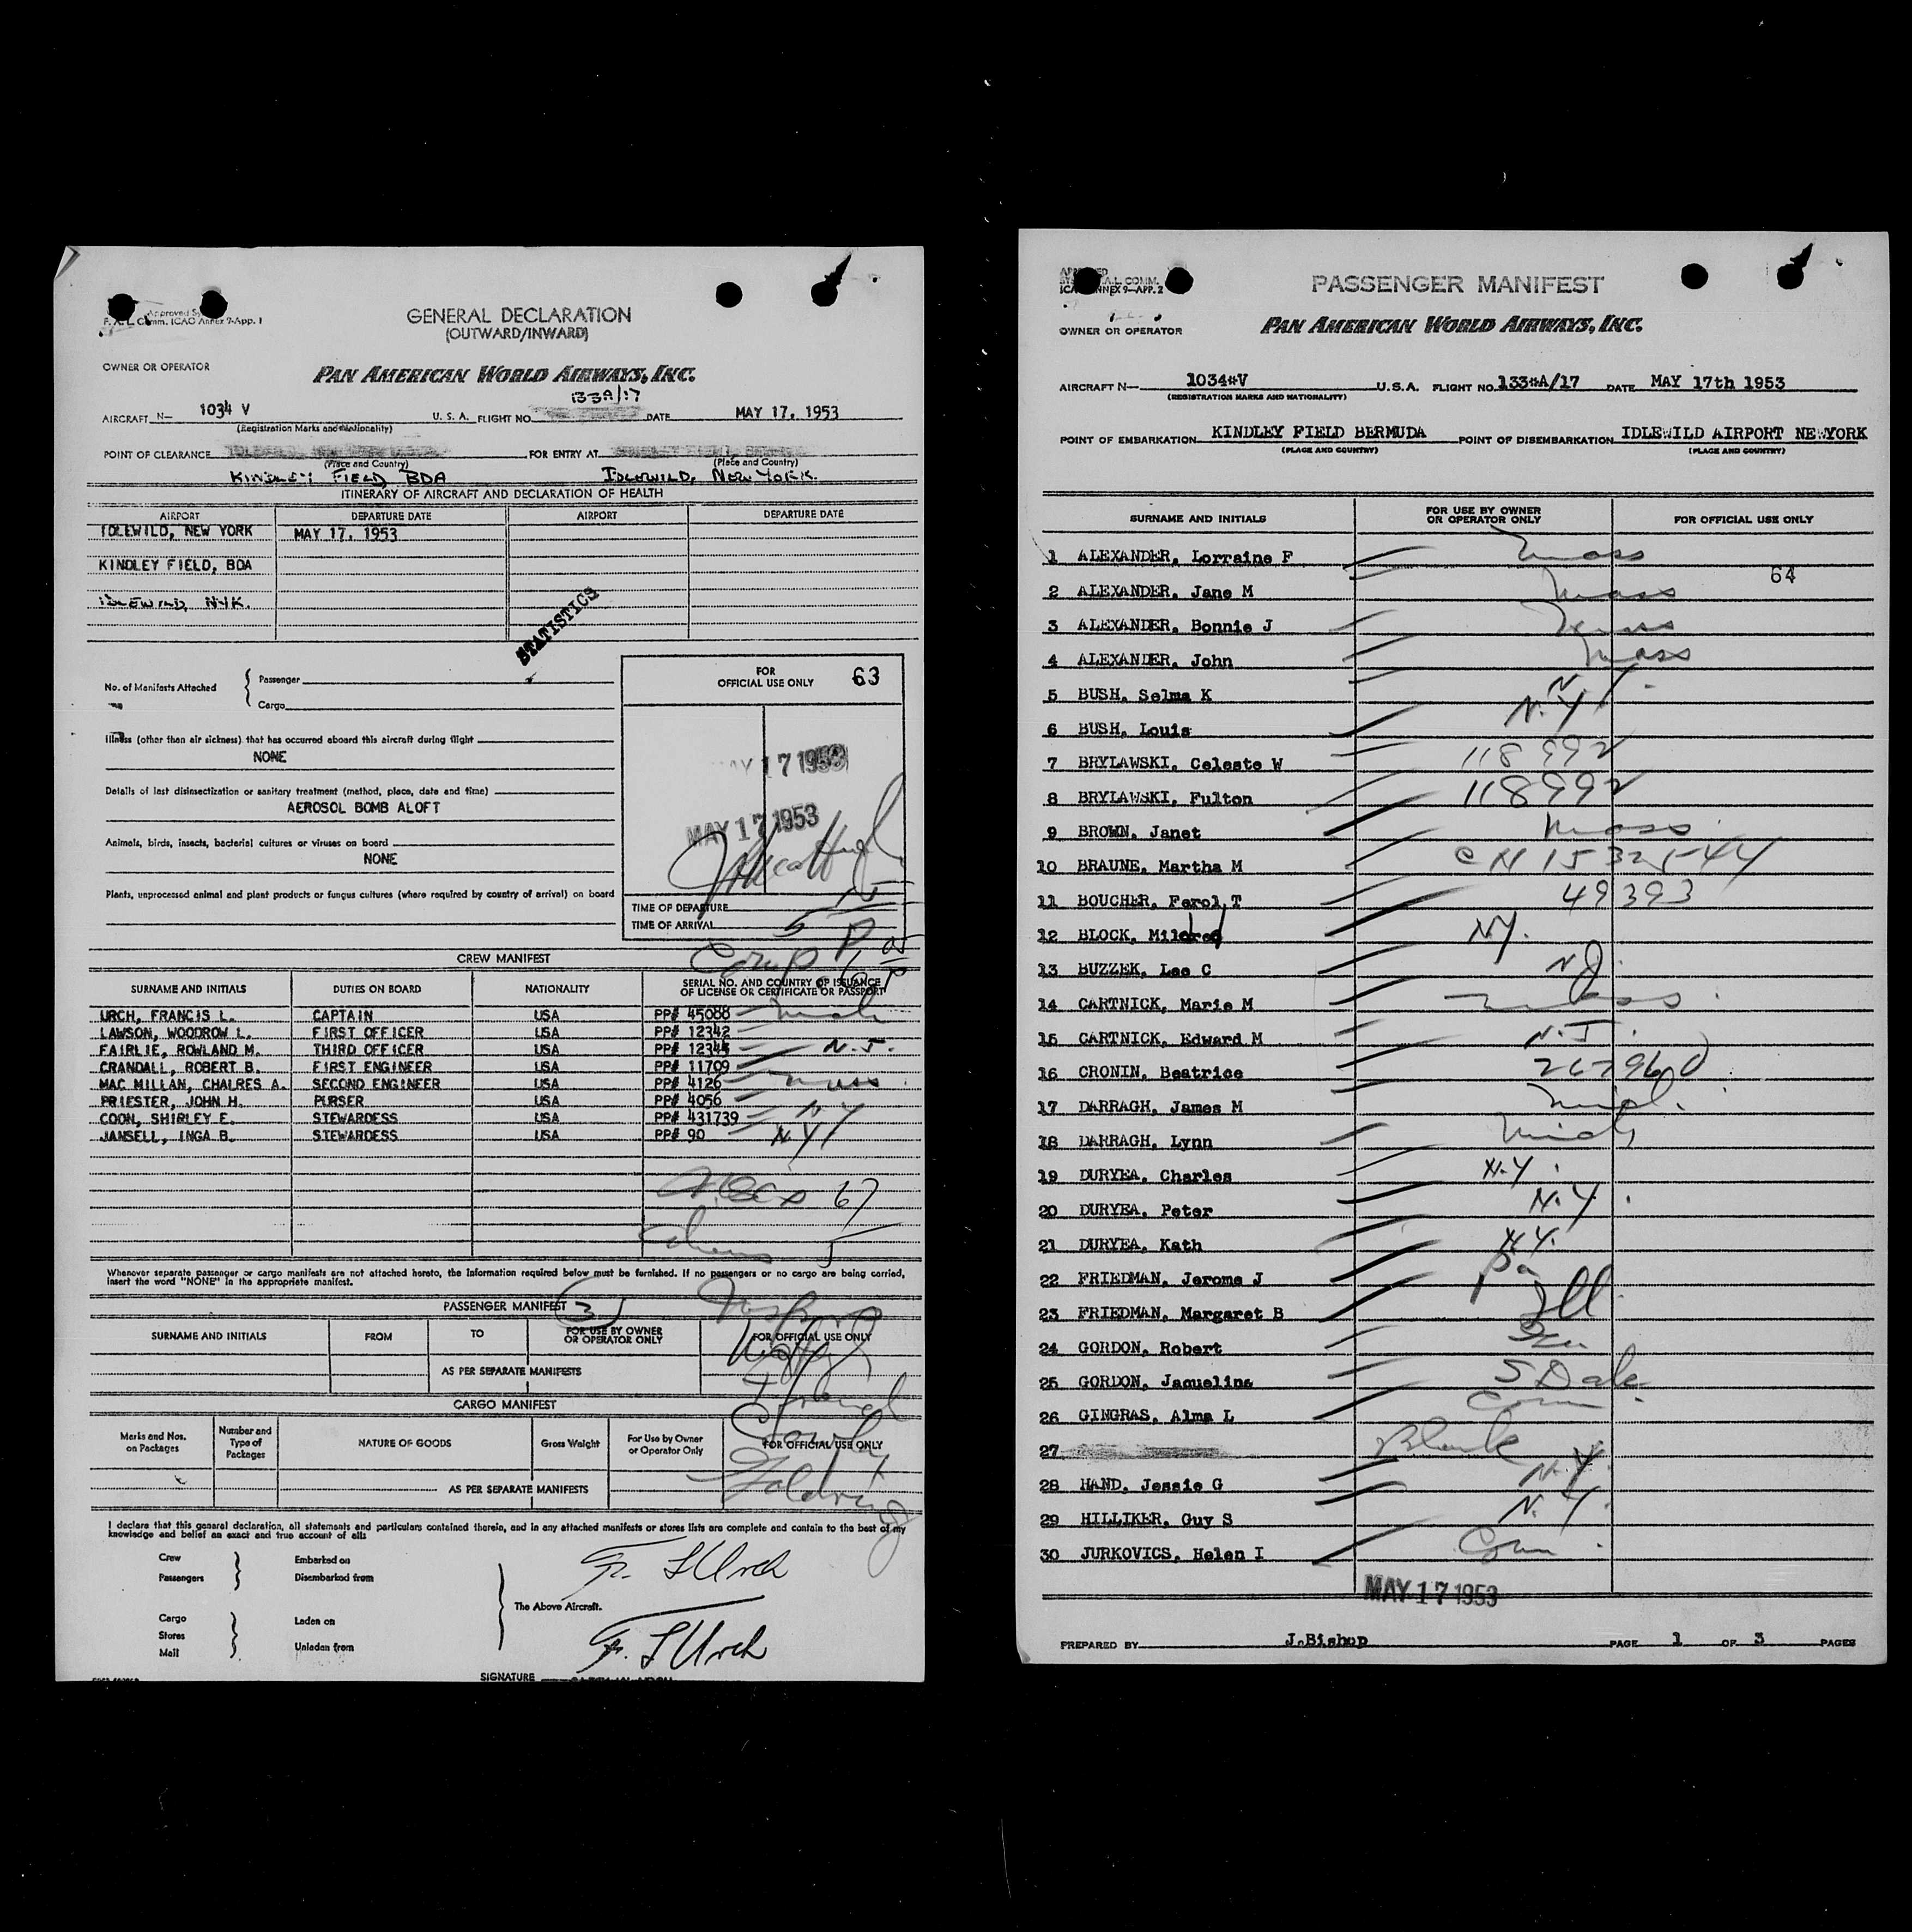 Approved
F. A. L. Comm. ICAO Annex 9-App. 1
GENERAL DECLARATION
(OUTWARD/INWARD)
OWNER OR OPERATOR
PAN AMERICAN WORLD AIRWAYS, INC.
133A/17
AIRCRAFT N— 1034 V U. S. A. FLIGHT NO. DATE MAY 17, 1953
(Registration Marks and Nationality)
POINT OF CLEARANCE FOR ENTRY AT
(Place and Country) (Place and Country)
KINDLEY FIELD, BDA IDLEWILD, NEW YORK.
ITINERARY OF AIRCRAFT AND DECLARATION OF HEALTH
AIRPORT DEPARTURE DATE AIRPORT DEPARTURE DATE
IDLEWILD, NEW YORK MAY 17, 1953
KINDLEY FIELD, BDA
IDLEWILD, NYK.
STATISTICS
No. of Manifests Attached { Passenger
Cargo
FOR
OFFICIAL USE ONLY 63
Illness (other than air sickness) that has occurred aboard this aircraft during flight
NONE
MAY 17 1953
Details of last disinsectization or sanitary treatment (method, place, date and time)
AEROSOL BOMB ALOFT
MAY 17 1953
Animals, birds, insects, bacterial cultures or viruses on board
NONE
Plants, unprocessed animal and plant products or fungus cultures (where required by country of arrival) on board
TIME OF DEPARTURE
TIME OF ARRIVAL 5 P
CREW MANIFEST
SURNAME AND INITIALS DUTIES ON BOARD NATIONALITY SERIAL NO. AND COUNTRY OF ISSUANCE
OF LICENSE OR CERTIFICATE OR PASSPORT
URCH, FRANCIS L. CAPTAIN USA PP# 45088
LAWSON, WOODROW L. FIRST OFFICER USA PP# 12342
FAIRLIE, ROWLAND M. THIRD OFFICER USA PP# N.J.
CRANDALL, ROBERT B. FIRST ENGINEER USA PP# 11709
MAC MILLAN, CHALRES A. SECOND ENGINEER USA PP# 4126 Mass.
PRIESTER, JOHN H. PURSER USA PP# 4056
COON, SHIRLEY E. STEWARDESS USA PP# 431739 N.Y
JANSELL, INGA B. STEWARDESS USA PP# 90 N.Y
67
5
Whenever separate passenger or cargo manifests are not attached hereto, the information required below must be furnished. If no passengers or no cargo are being carried,
insert the word "NONE" in the appropriate manifest.
PASSENGER MANIFEST 3
SURNAME AND INITIALS FROM TO FOR USE BY OWNER
OR OPERATOR ONLY FOR OFFICIAL USE ONLY
AS PER SEPARATE MANIFESTS
CARGO MANIFEST
Marks and Nos.
on Packages Number and
Type of
Packages NATURE OF GOODS Gross Weight For Use by Owner
or Operator Only FOR OFFICIAL USE ONLY
AS PER SEPARATE MANIFESTS
I declare that this general declaration, all statements and particulars contained therein, and in any attached manifests or stores lists are complete and contain to the best of my
knowledge and belief an exact and true account of all:
Crew Embarked on
Passengers Disembarked from
F. L Urch
The Above Aircraft.
Cargo Laden on
Stores
Mail Unladen from
F. L Urch
SIGNATURE
APPROVED
F.A.L. COMM.
ICAO ANNEX 9—APP. 2
PASSENGER MANIFEST
OWNER OR OPERATOR
PAN AMERICAN WORLD AIRWAYS, INC.
AIRCRAFT N— 1034#V U.S.A. FLIGHT NO. 133#A/17 DATE MAY 17th 1953
(REGISTRATION MARKS AND NATIONALITY)
POINT OF EMBARKATION KINDLEY FIELD BERMUDA POINT OF DISEMBARKATION IDLEWILD AIRPORT NEWYORK
(PLACE AND COUNTRY) (PLACE AND COUNTRY)
SURNAME AND INITIALS FOR USE BY OWNER
OR OPERATOR ONLY FOR OFFICIAL USE ONLY
1 ALEXANDER, Lorraine F Mass
64
2 ALEXANDER, Jane M Mass
3 ALEXANDER, Bonnie J Mass
4 ALEXANDER, John Mass
5 BUSH, Selma K N.Y.
6 BUSH, Louis N.Y
7 BRYLAWSKI, Celeste W 118992
8 BRYLAWSKI, Fulton 118992
9 BROWN, Janet Mass.
10 BRAUNE, Martha M
11 BOUCHER, Ferol T 49393
12 BLOCK, Mildred NY.
13 BUZZEK, Lee C NJ.
14 CARTNICK, Marie M Mass.
15 CARTNICK, Edward M N.J.
16 CRONIN, Beatrice 267960
17 DARRAGH, James M Mich.
18 DARRAGH, Lynn Mich
19 DURYEA, Charles N.Y.
20 DURYEA, Peter N.Y.
21 DURYEA, Kath N.Y.
22 FRIEDMAN, Jerome J Pa
23 FRIEDMAN, Margaret B Ill
24 GORDON, Robert
25 GORDON, Jaqueline S Dak
26 GINGRAS, Alma L Conn.
27 Blank
28 HAND, Jessie G N.Y.
29 HILLIKER, Guy S N.Y
30 JURKOVICS, Helen I Conn.
MAY 17 1953
PREPARED BY J.Bishop PAGE 1 OF 3 PAGES